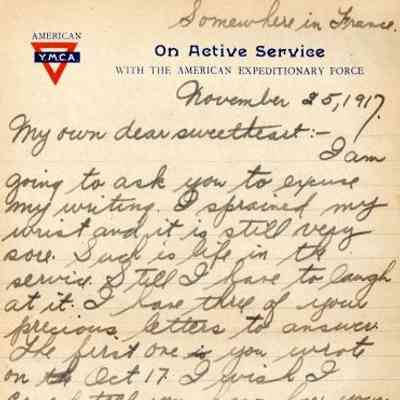 Somewhere in France.
AMERICAN
Y.M.C.A
On Active Service
WITH THE AMERICAN EXPEDITIONARY FORCE
November 25, 1917.
My own dear sweetheart:-
I am
going to ask you to excuse
my writing. I sprained my
wrist and it is still very
sore. Such is life in the
service. Still I have to laugh
at it. I have three of your
precious letters to answer.
The first one is you wrote
on th Oct 17. I wish I